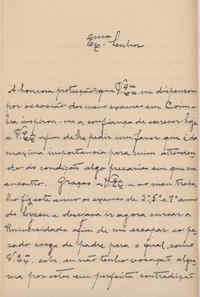 Exmo
Senhor
A honrosa protecção que V. Exa me dispensou
por occasião dos meus exames em Coim-
bra inspirou-me a confiança de escrever hoje
a V. Exa afim de lhe pedir um favor que é da
maxima importancia para mim attenden-
do ás condições algo precarias em que me
encontro. Graças a V. Exa e ao meu traba-
lho fiz este anno os exames de
do lyceu e desejava ir agora cursar a
Universidade afim de me escapar ao pe-
sado cargo de Padre para o qual, como
V. Exa sabe eu não tenho vocação algu-
ma por estar em perfeita contradicção